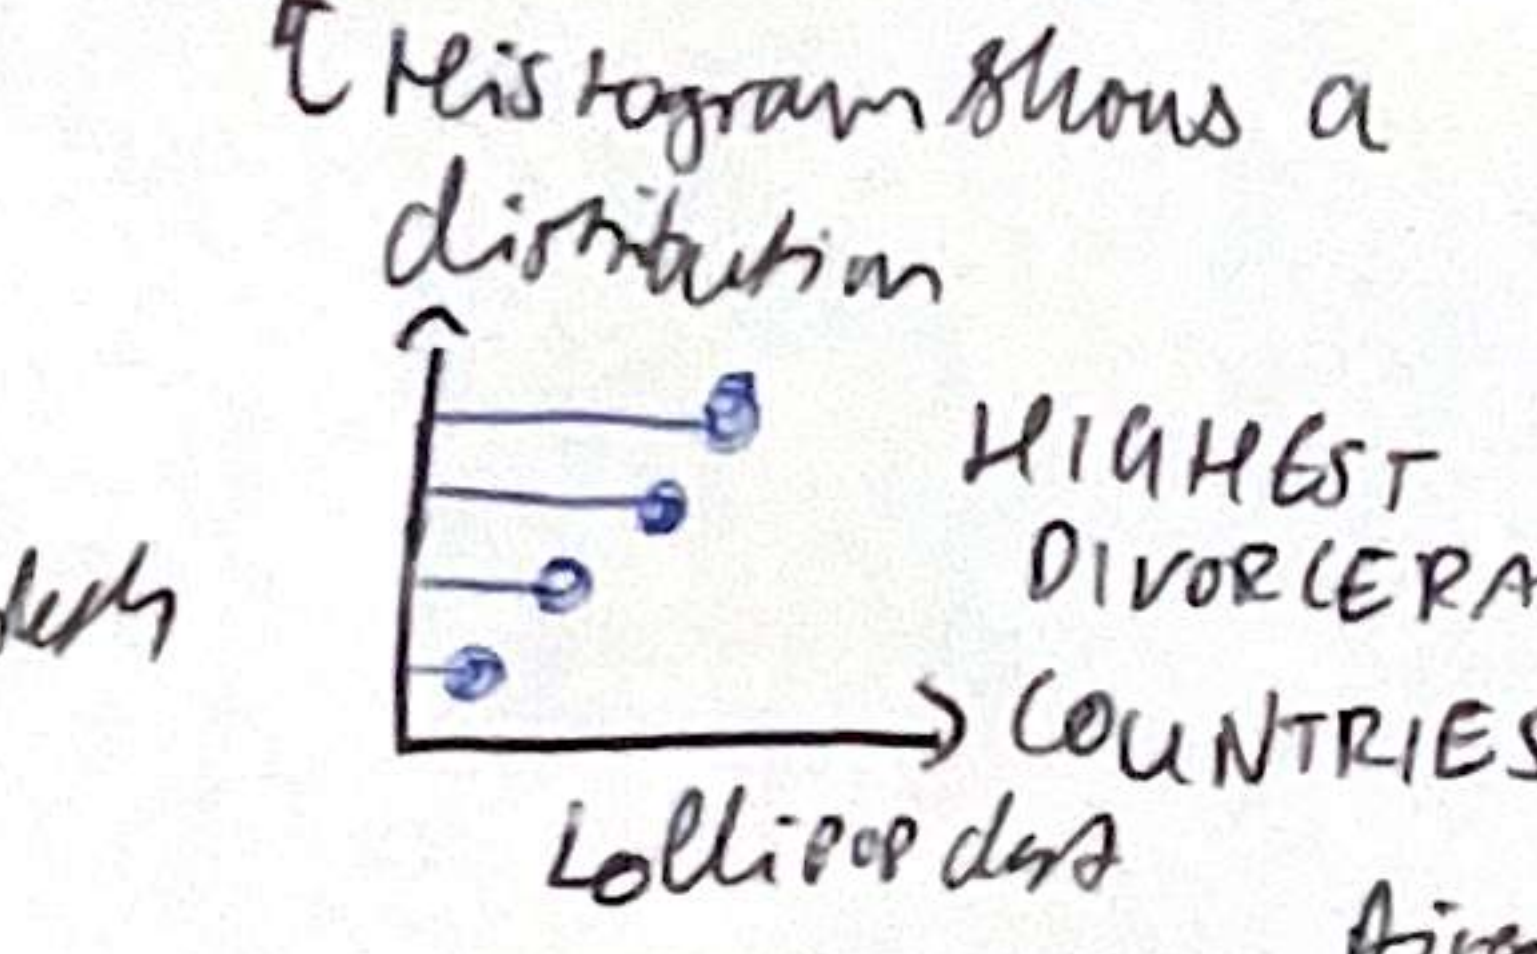 Histogram shows a
distribution
HIGHEST
DIVORCERA
COUNTRIES
Lollipop